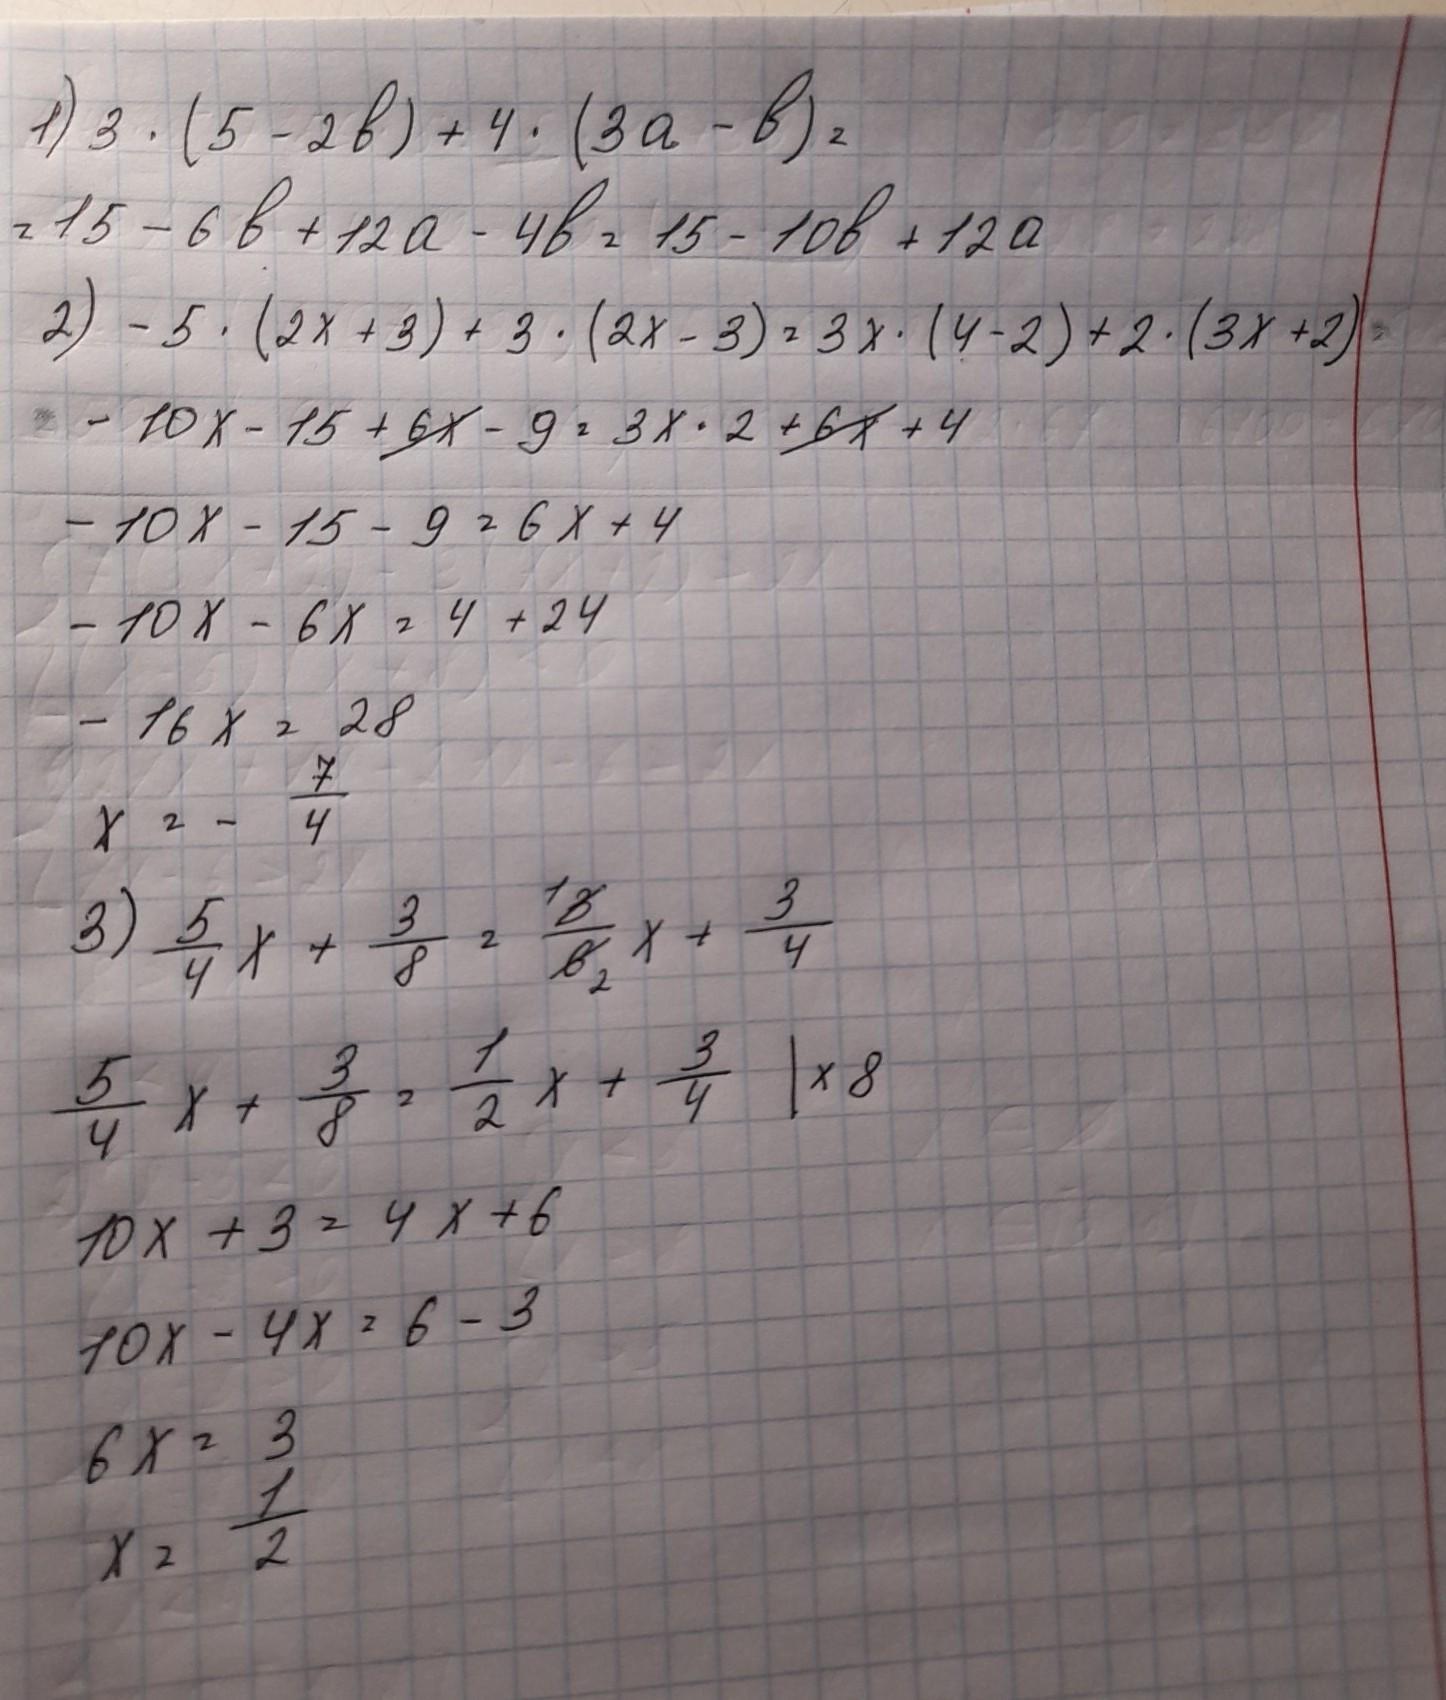 1) 3 · (5 - 2b) + 4 · (3a - b) =
= 15 - 6b + 12a - 4b = 15 - 10b + 12a
2) - 5 · (2x + 3) + 3 · (2x - 3) = 3x · (4 - 2) + 2 · (3x + 2)
- 10x - 15 + 6x - 9 = 3x · 2 + 6x + 4
- 10x - 15 - 9 = 6x + 4
- 10x - 6x = 4 + 24
- 16x = 28
x = - 7/4
3) 5/4 x + 3/8 = 1 3/6 2 x + 3/4
5/4 x + 3/8 = 1/2 x + 3/4 | × 8
10x + 3 = 4x + 6
10x - 4x = 6 - 3
6x = 3
x = 1/2